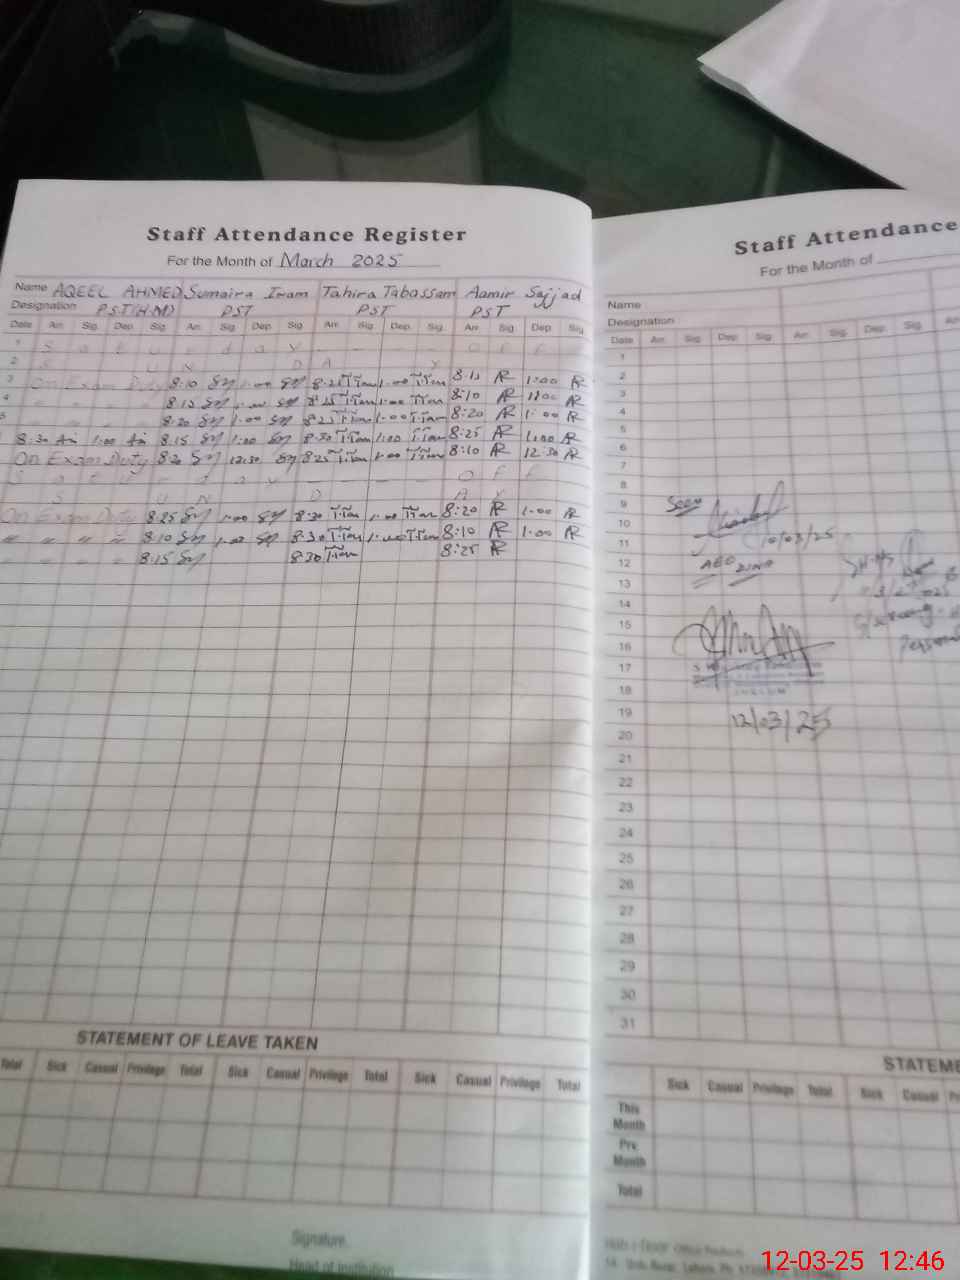 Staff Attendance Register
For the Month of March 2025
Name AQEEL AHMED Sumaira Iram Tahira Tabassam Aamir Sajjad
Designation P.S.T(H.M) PST PST PST
Date Arr. Sig. Dep. Sig. Arr. Sig. Dep. Sig. Arr. Sig. Dep. Sig. Arr. Sig. Dep. Sig.
1 S a t u r d a y O F F
2 S U N D A Y
3 On Exam Duty 8.10 1.00 8.25 1.00 8:15 1:00
4 8.15 8.25 1.00 8:10 1:00
5 8.20 1.00 8.25 1.00 8:20 1:00
8:30 1:00 8.15 1:00 8.30 1:00 8:25 1:00
On Exam Duty 8.20 12.30 8.25 1.00 8:10 12:30
S a t u r d a y O F F
S U N D A Y
On Exam Duty 8.25 1.00 8.30 1.00 8:20 1:00
" " " 8.10 1.00 8.30 1.00 8:10 1:00
8.15 8.30 8:25
STATEMENT OF LEAVE TAKEN
Total Sick Casual Privilege Total Sick Casual Privilege Total Sick Casual Privilege Total
Signature
Head of Institution
Staff Attendance
For the Month of
Name
Designation
Date Arr. Sig. Dep. Sig. Arr. Sig. Dep. Sig.
1
2
3
4
5
6
7
8
9 Seen
10
11 10/03/25
12 AEO
13
14
15
16
17
18
19 12/03/25
20
21
22
23
24
25
26
27
28
29
30
31
STATEME
Sick Casual Privilege Total Sick Casual
This Month
Pre Month
Total
12-03-25 12:46